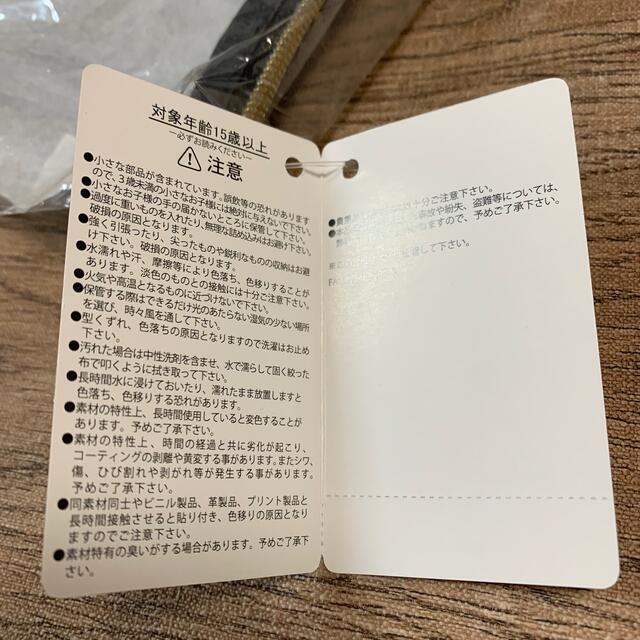 対象年齢15歳以上
ー必ずお読みくださいー
注意
●小さな部品が含まれています。誤飲等の恐れがあります
ので、3歳未満の小さなお子様には絶対に与えないで下さい。
●小さなお子様の手の届かないところに保管して下さい。
●過度に重いものを入れたり、無理な詰め込みはお避け下さい。
破損の原因となります。
●強く引張ったり、尖ったものや鋭利なものの収納はお避
け下さい。破損の原因となります。
●水濡れや汗、摩擦等により色落ち、色移りすることが
あります。淡色のものとの接触には十分ご注意下さい。
●火気や高温となるものに近づけないで下さい。
●保管する際はできるだけ光のあたらない湿気の少ない場所
を選び、時々風を通して下さい。
●型くずれ、色落ちの原因となりますので洗濯はお止め
下さい。
●汚れた場合は中性洗剤を含ませ、水で濡らして固く絞った
布で叩くように拭き取って下さい。
●長時間水に浸けておいたり、濡れたまま放置しますと
色落ち、色移りする恐れがあります。
●素材の特性上、長時間使用していると変色することが
あります。予めご了承下さい。
●素材の特性上、時間の経過と共に劣化が起こり、
コーティングの剥離や黄変する事があります。またシワ、
傷、ひび割れや剥がれ等が発生する事があります。
予めご了承下さい。
●同素材同士やビニール製品、革製品、プリント製品と
長時間接触させると貼り付き、色移りの原因となり
ますのでご注意下さい。
●素材特有の臭いがする場合があります。予めご了承下
さい。
●貴
十分ご注意下さい。
●本
故や紛失、盗難等については、
ますので、予めご了承下さい。
して下さい。
FA